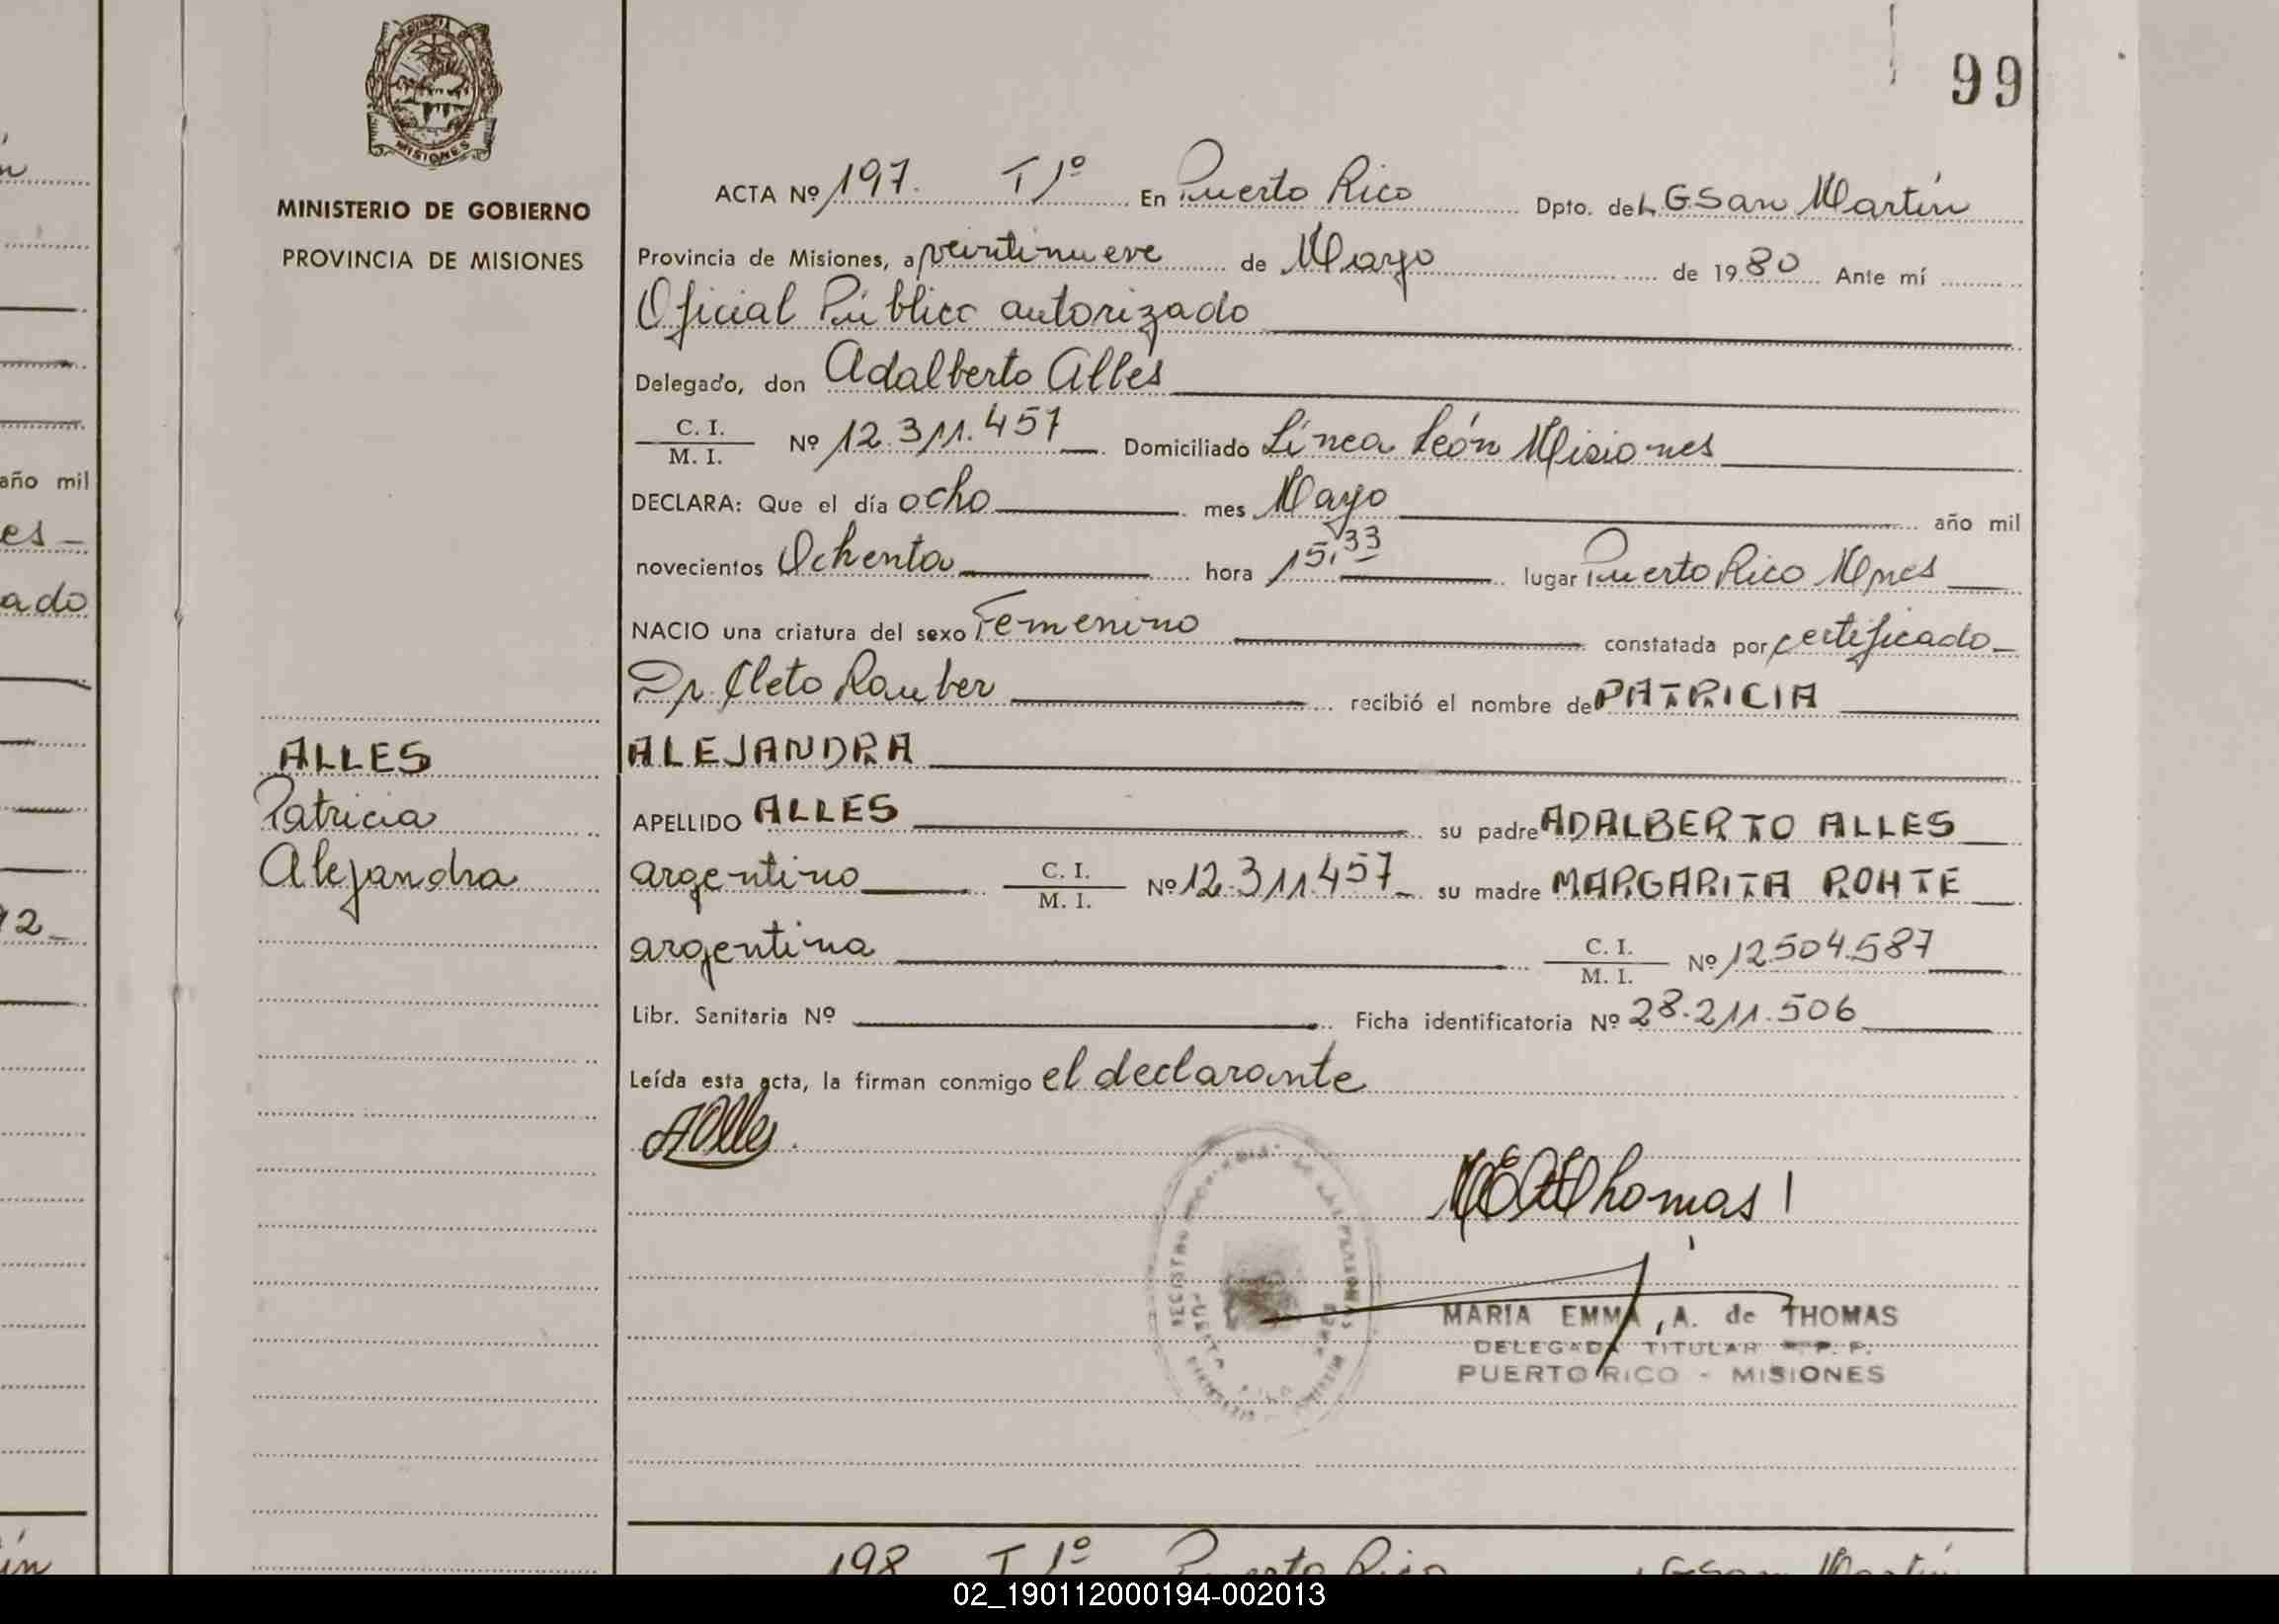 99
MISIONES
MINISTERIO DE GOBIERNO
PROVINCIA DE MISIONES
ACTA Nº 197. T 1º En Puerto Rico Dpto. del L G San Martín
Provincia de Misiones, a veintinueve de Mayo de 1980 Ante mí
Oficial Público autorizado
Delegado, don Adalberto Alles
C. I.
M. I. Nº 12.311.457 Domiciliado Línea León Misiones
DECLARA: Que el día ocho mes Mayo año mil
novecientos Ochenta hora 15,33 lugar Puerto Rico Mnes
NACIO una criatura del sexo Femenino constatada por certificado
Dr. Cleto Rauber recibió el nombre de PATRICIA
ALEJANDRA
APELLIDO ALLES su padre ADALBERTO ALLES
argentino C. I.
M. I. Nº 12.311.457 su madre MARGARITA ROHTE
argentina C. I.
M. I. Nº 12.504.587
Libr. Sanitaria Nº Ficha identificatoria Nº 28.211.506
Leída esta acta, la firman conmigo el declarante
ALLES
Patricia
Alejandra
AAlles.
MEAThomas
MARIA EMMA, A. de THOMAS
DELEGADA TITULAR
PUERTO RICO - MISIONES
198 T 1º Puerto Rico L G San Martín
año mil
es
ado
12
02_190112000194-002013